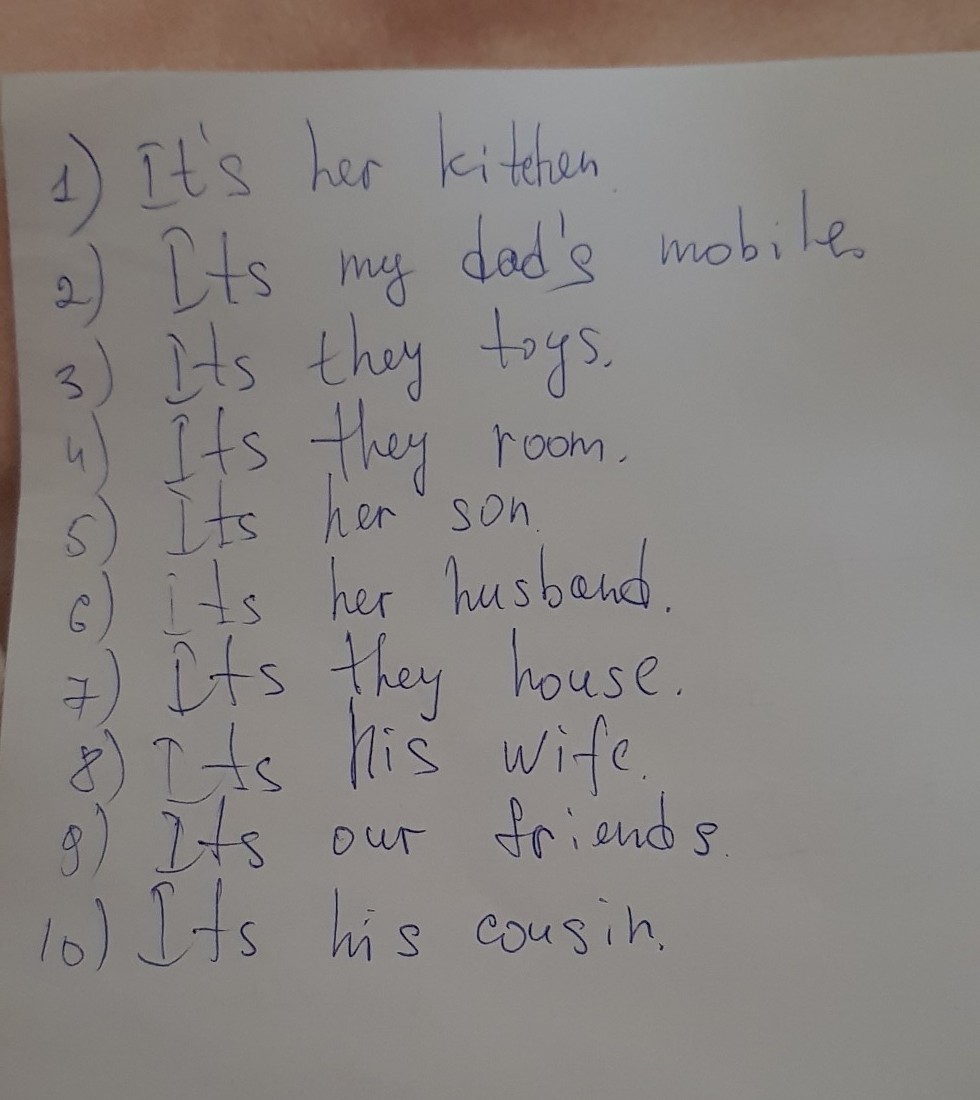 1) It's her kitchen.
2) Its my dad's mobile.
3) Its they toys.
4) Its they room.
5) Its her son.
6) its her husband.
7) Its they house.
8) Its his wife.
9) Its our friends.
10) Its his cousin.